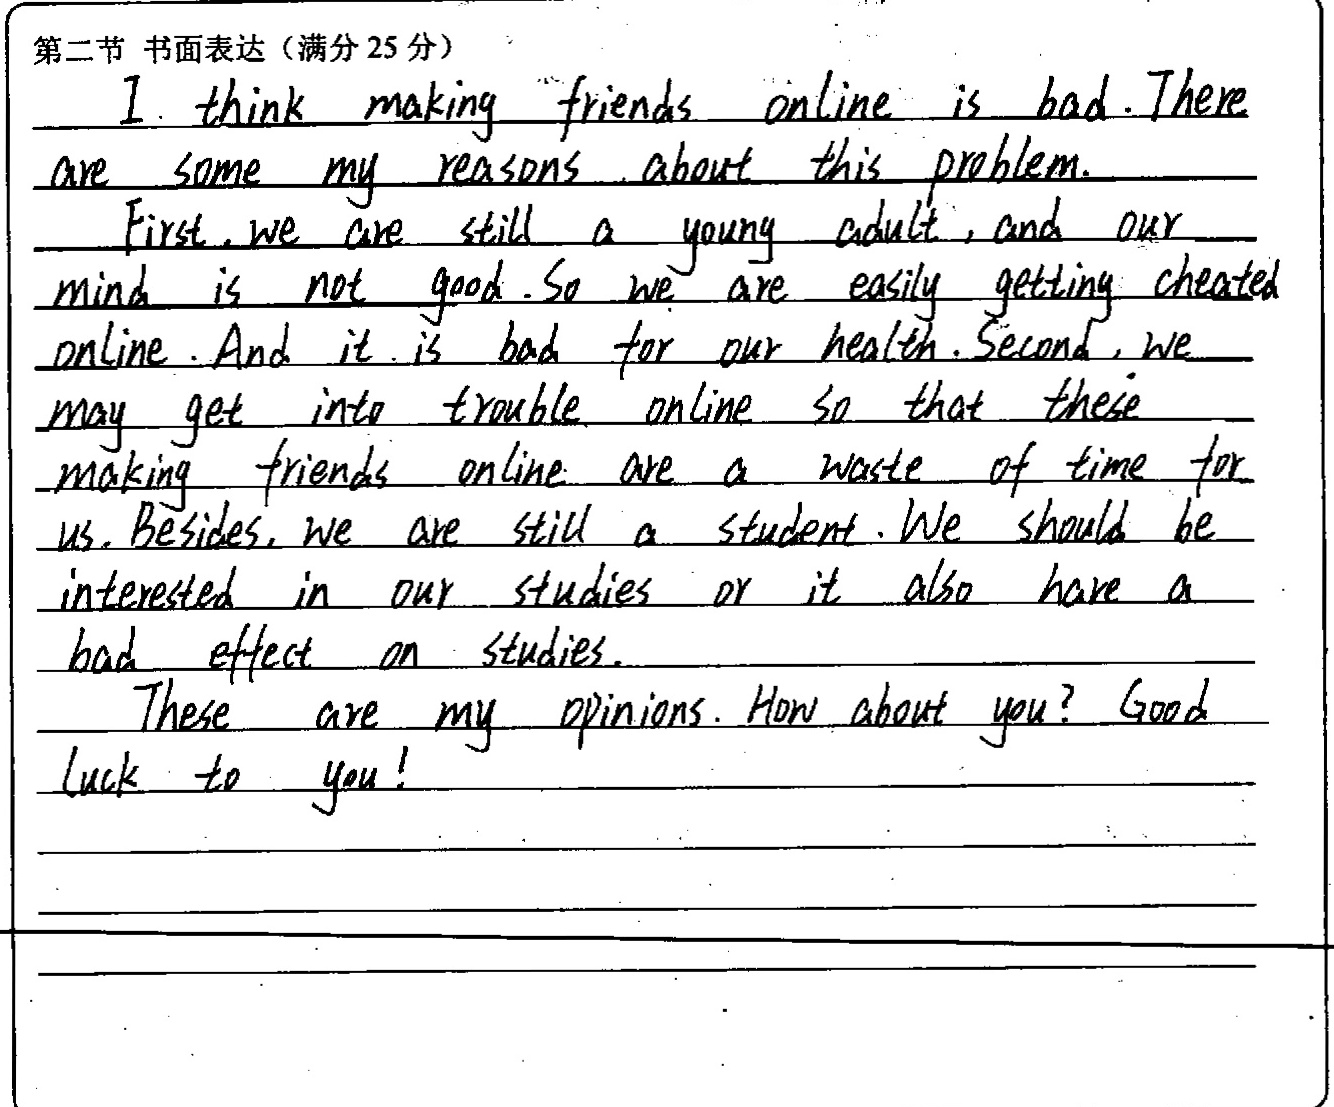 第二节 书面表达（满分 25 分）
I think making friends online is bad. There
are some my reasons about this problem.
First, we are still a young adult, and our
mind is not good. So we are easily getting cheated
online. And it is bad for our health. Second, we
may get into trouble online so that these
making friends online are a waste of time for
us. Besides, we are still a student. We should be
interested in our studies or it also have a
bad effect on studies.
These are my opinions. How about you? Good
luck to you!